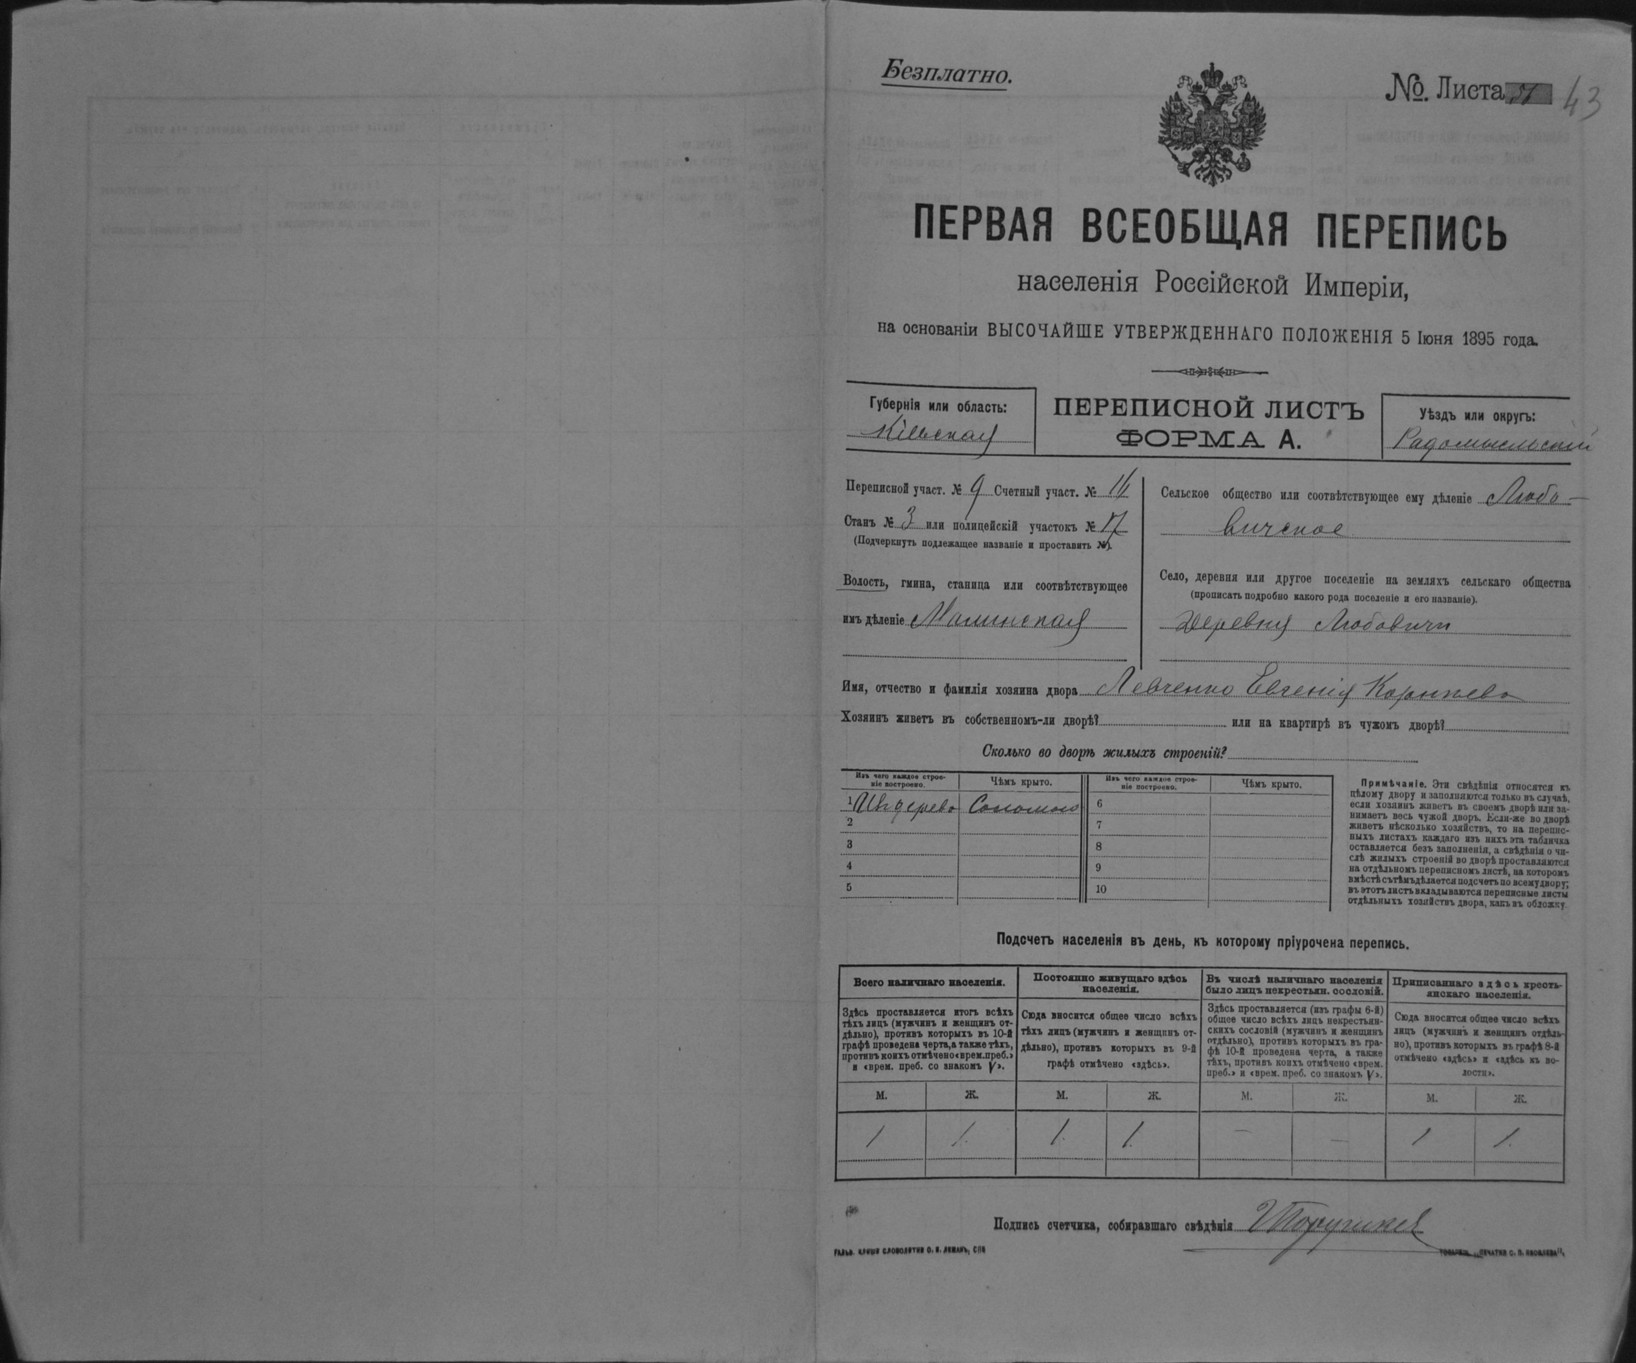 Безплатно.
№ Листа 43
ПЕРВАЯ ВСЕОБЩАЯ ПЕРЕПИСЬ
населенія Россійской Имперіи,
на основаніи ВЫСОЧАЙШЕ УТВЕРЖДЕННАГО ПОЛОЖЕНІЯ 5 Іюня 1895 года.
Губернія или область:
Кіевская
ПЕРЕПИСНОЙ ЛИСТЪ
ФОРМА А.
Уѣздъ или округъ:
Радомысльскій
Переписной участ. № 9 Счетный участ. №
Станъ № 3 или полицейскій участокъ №
(Подчеркнуть подлежащее названіе и проставить №).
Волость, гмина, станица или соотвѣтствующее
имъ дѣленіе Малинская
Сельское общество или соотвѣтствующее ему дѣленіе Любо-
вичское
Село, деревня или другое поселеніе на земляхъ сельскаго общества
(прописать подробно какого рода поселеніе и его названіе).
Деревня Любовичи
Имя, отчество и фамилія хозяина двора Левченко Евгенія
Хозяинъ живетъ въ собственномъ-ли дворѣ? или на квартирѣ въ чужомъ дворѣ?
Сколько во дворѣ жилыхъ строеній?
Изъ чего каждое строе-
ніе построено.
Чѣмъ крыто.
Изъ чего каждое строе-
ніе построено.
Чѣмъ крыто.
1 Изъ дерева Соломою
2
3
4
5
6
7
8
9
10
Примѣчаніе. Эти свѣдѣнія относятся къ
цѣлому двору и заполняются только въ случаѣ,
если хозяинъ живетъ въ своемъ дворѣ или за-
нимаетъ весь чужой дворъ. Если-же во дворѣ
живетъ нѣсколько хозяйствъ, то на перепис-
ныхъ листахъ каждаго изъ нихъ эта табличка
оставляется безъ заполненія, а свѣдѣнія о чи-
слѣ жилыхъ строеній во дворѣ проставляются
на отдѣльномъ переписномъ листѣ, на которомъ
вмѣстѣ съ тѣмъ дѣлается подсчетъ по всему двору;
въ этотъ листъ вкладываются переписные листы
отдѣльныхъ хозяйствъ двора, какъ въ обложку.
Подсчетъ населенія въ день, къ которому пріурочена перепись.
Всего наличнаго населенія.
Постоянно живущаго здѣсь
населенія.
Въ числѣ наличнаго населенія
было лицъ некрестьян. сословій.
Приписаннаго здѣсь кресть-
янскаго населенія.
Здѣсь проставляется итогъ всѣхъ
тѣхъ лицъ (мужчинъ и женщинъ от-
дѣльно), противъ которыхъ въ 10-й
графѣ проведена черта, а также тѣхъ,
противъ коихъ отмѣчено «врем. преб.»
и «врем. преб. со знакомъ V».
Сюда вносится общее число всѣхъ
тѣхъ лицъ (мужчинъ и женщинъ от-
дѣльно), противъ которыхъ въ 9-й
графѣ отмѣчено «здѣсь».
Здѣсь проставляется (изъ графы 6-й)
общее число всѣхъ лицъ некрестьян-
скихъ сословій (мужчинъ и женщинъ
отдѣльно), противъ которыхъ въ гра-
фѣ 10-й проведена черта, а также
тѣхъ, противъ коихъ отмѣчено «врем.
преб.» и «врем. преб. со знакомъ V».
Сюда вносится общее число всѣхъ
лицъ (мужчинъ и женщинъ отдѣль-
но), противъ которыхъ въ графѣ 8-й
отмѣчено «здѣсь» и «здѣсь къ во-
лости».
М. Ж. М. Ж. М. Ж. М. Ж.
1 1. 1. 1. — — 1 1.
Подпись счетчика, собиравшаго свѣдѣнія